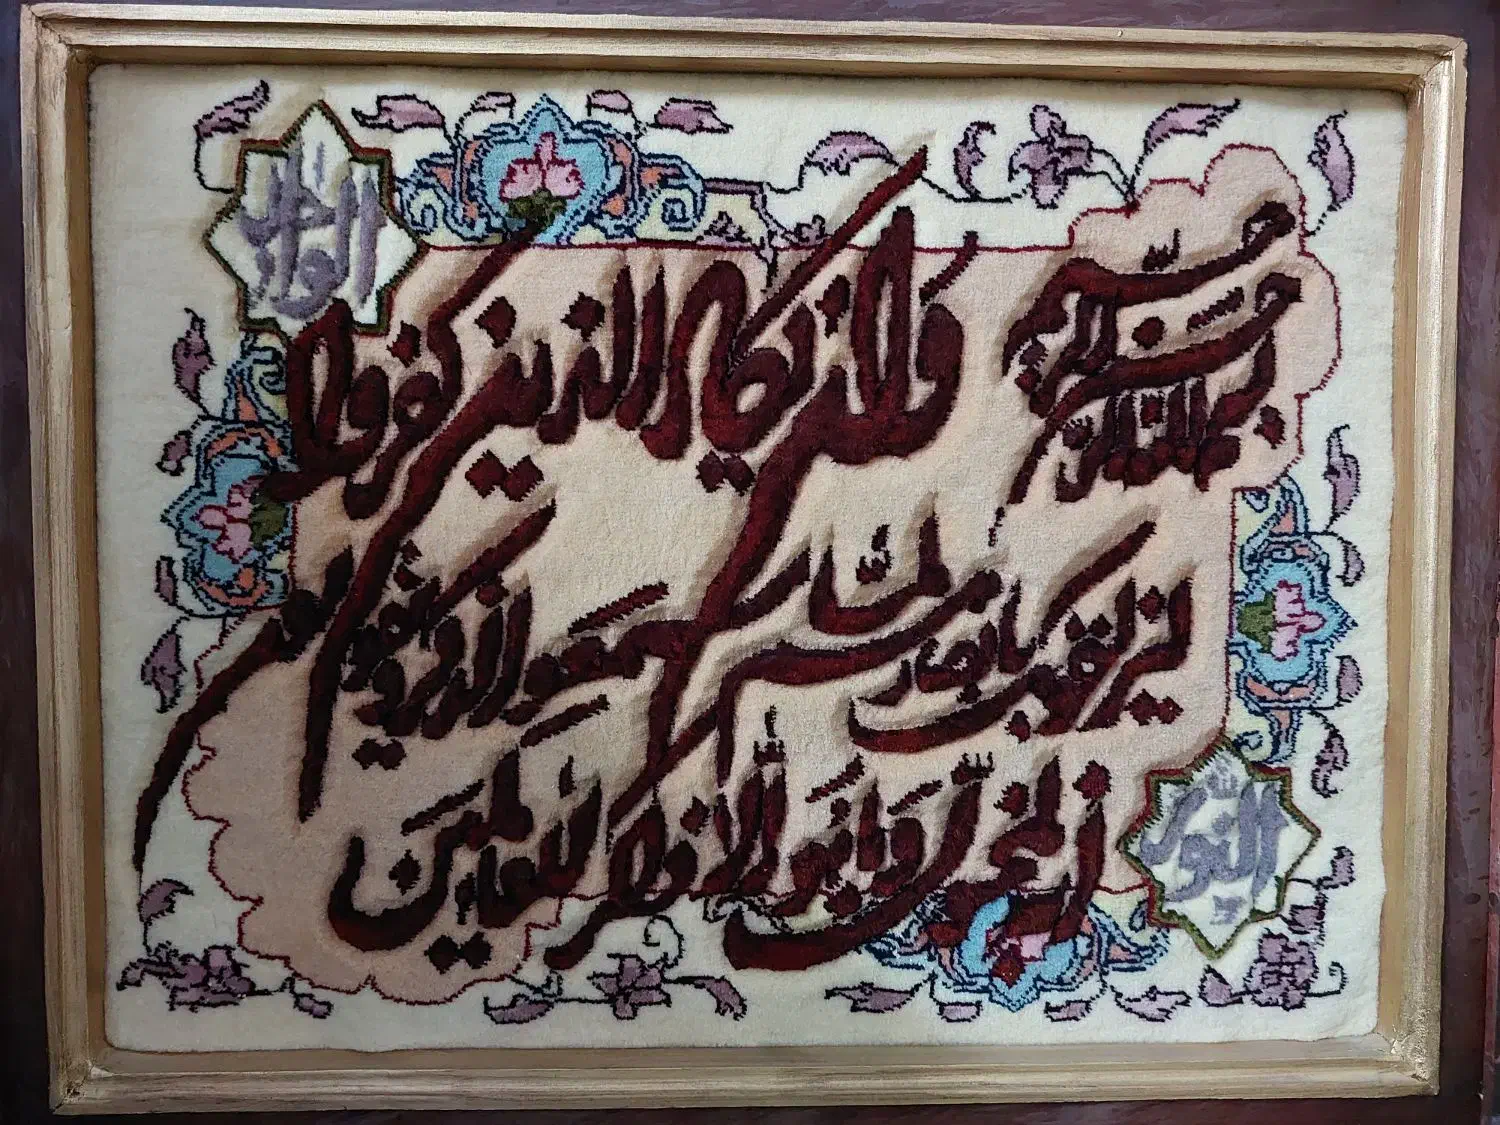 بسم الله الرحمن الرحیم
وان یکاد الذین کفروا
لیزلقونک بابصارهم لما سمعوا الذکر و یقولون
انه لمجنون و ما هو الا ذکر للعالمین
الله النور